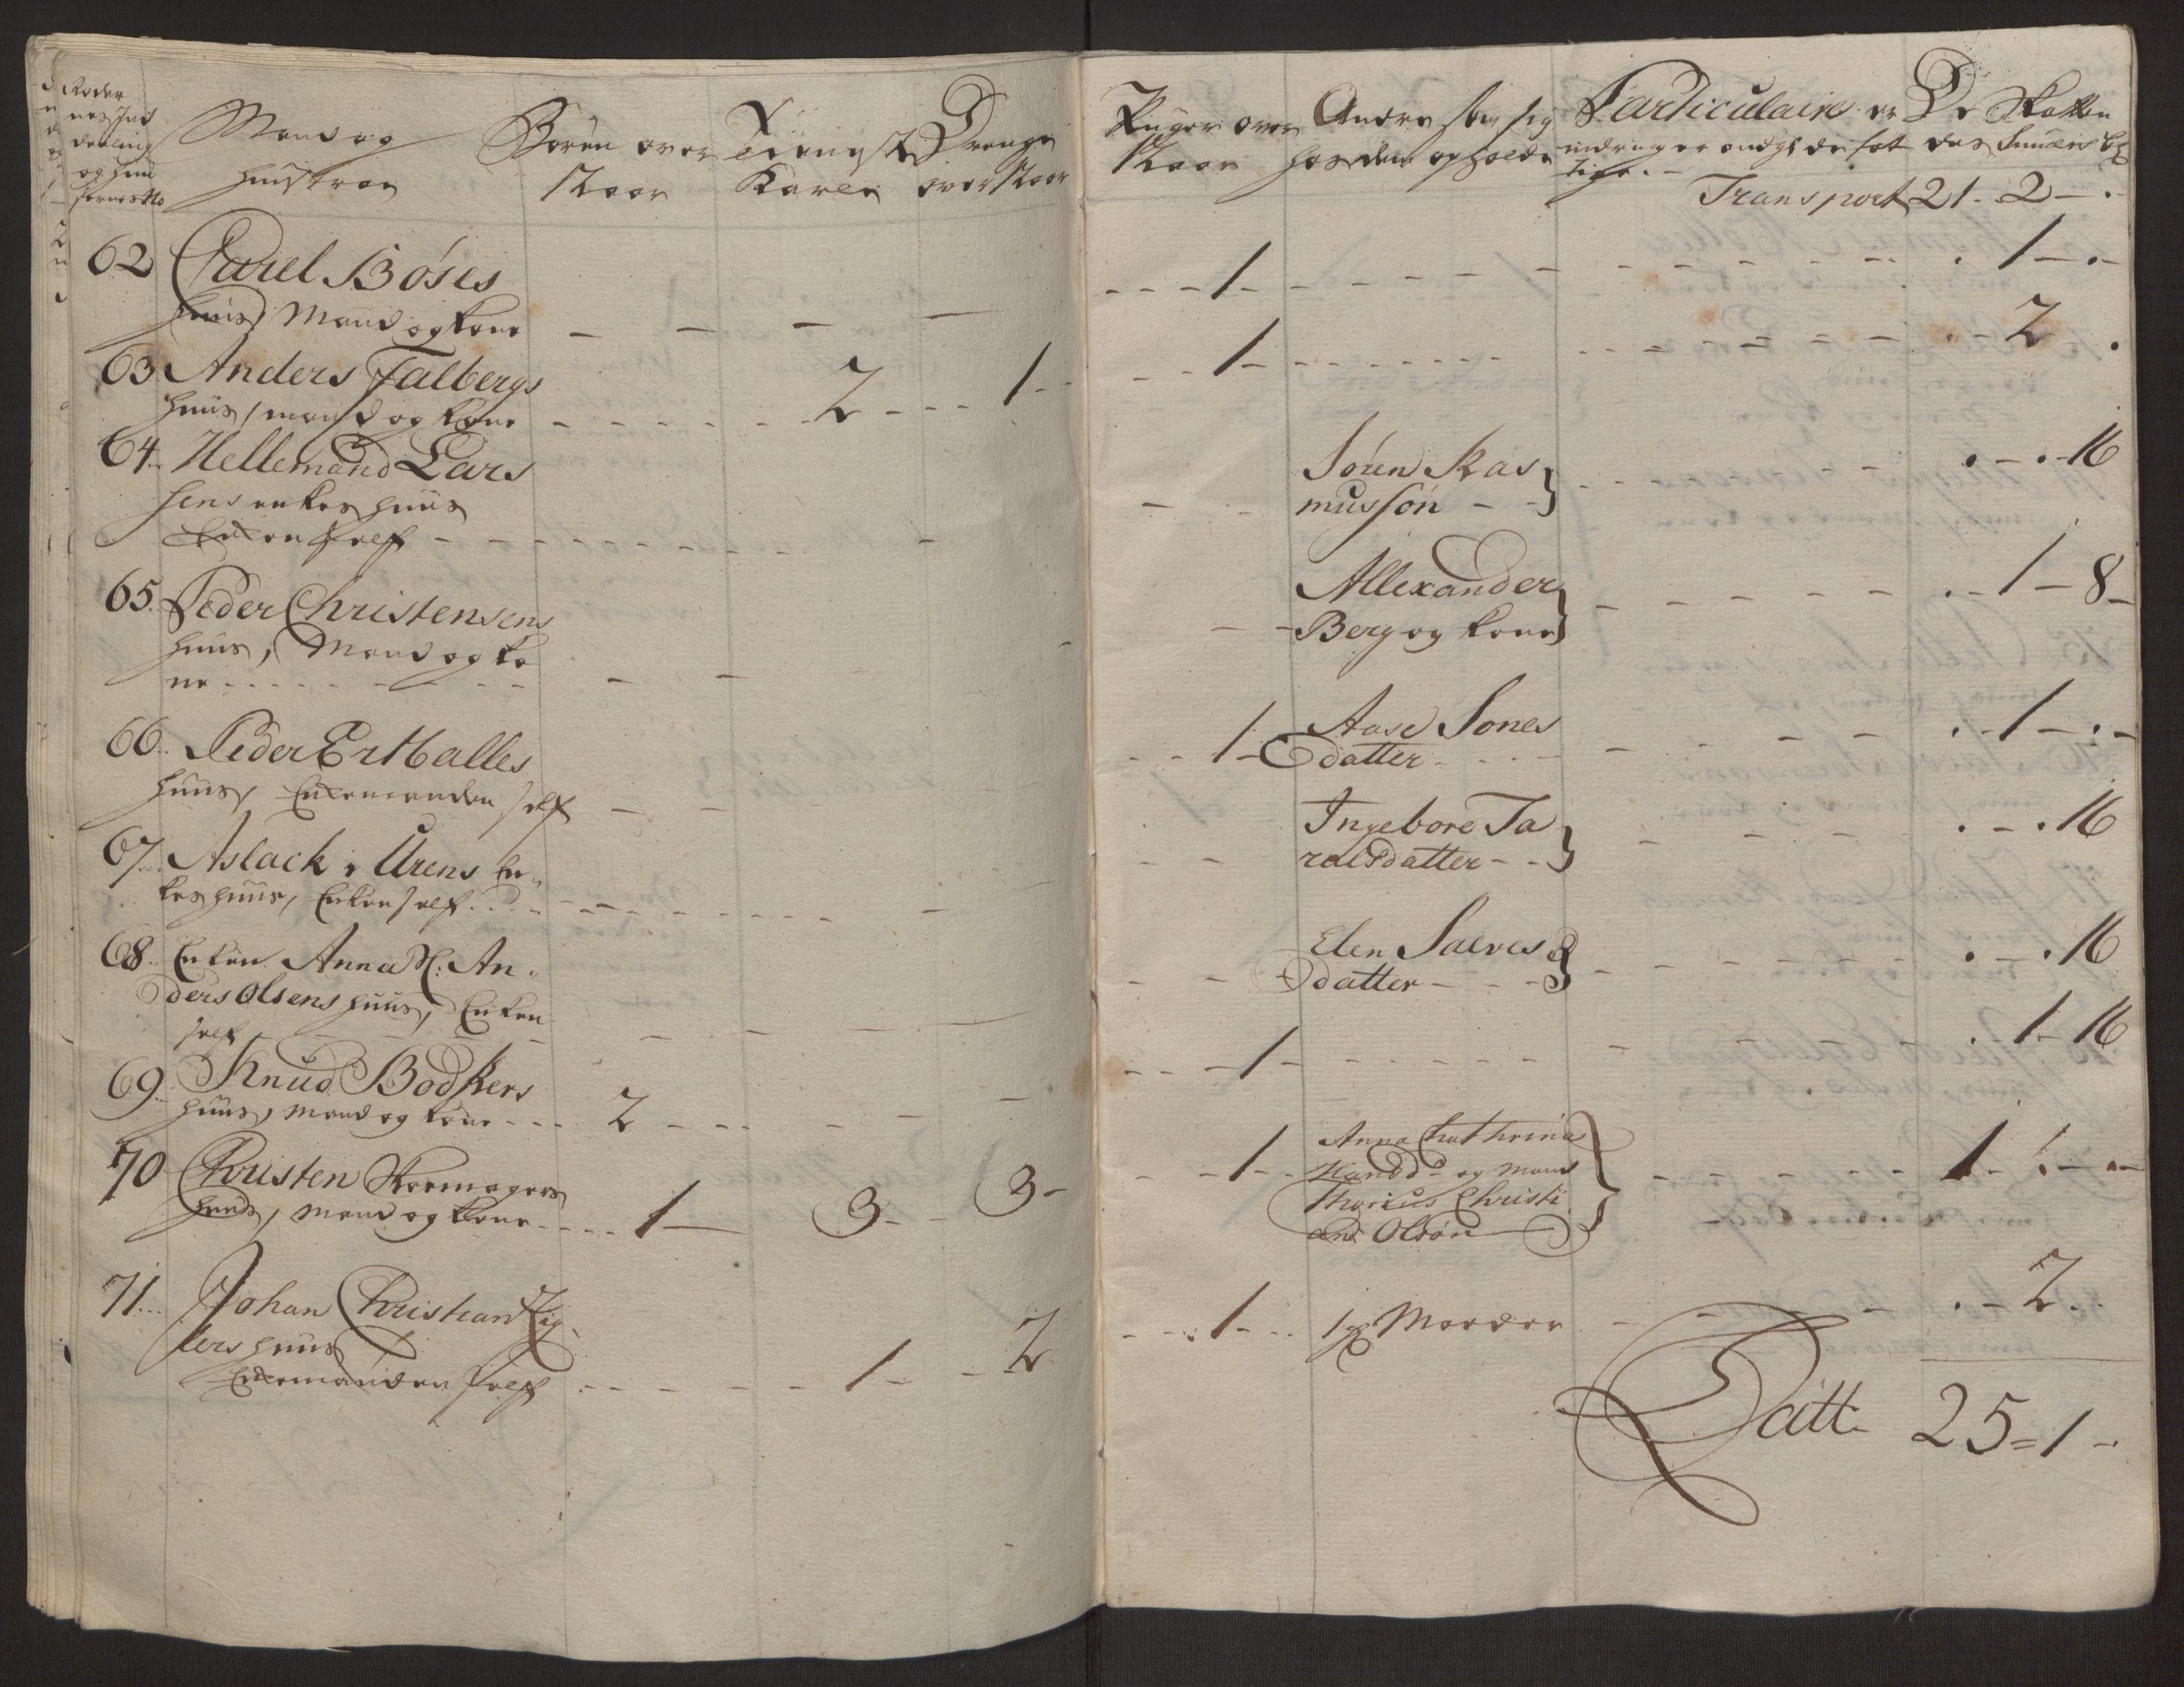 Roder
nes Ind
deeling
og huu
sernes No
Mand og
hustroe
Børen over
12 aar
Tienste
Karle
Drenge
over 12 aar
62 Carel Bóses
huus, Mand og kone - - - -
63 Anders Falbergs
huus, mand og kone - - - 2 - - - 1 -
64. Hellemand Lars
sens enkes huus
Enken self - - -
65. Peder Christensens
huus, Mand og ko
ne - - - -
66. Peder ErtBalles
huus, Enkemanden self - -
67. Aslack i Urens En-
kes huus, Enken self - - -
68. Enken Anna Sl: An-
ders Olsens huus, Enken
self - - -
69. Knud Bodkers
huus, Mand og kone - - - 2 - - -
70 Christen Skoemagers
huus, Mand og kone - - - 1 - 3 - - 3 -
71. Johan Christian Zig
lers huus
Enkemanden self - - - 1 - - 2
Piiger over
12 aar
Andre som sig
hos dem opholde
Particulaire
De Skatten
Transport 21 - 2 - .
- - - 1 - - - - . 1 - . -
- - 1 - - - - . - 2 .
Sóren Ras
musson - - } - - - . - . 16
Allexander
Berg og kone } - - - . - 1 - 8 -
- - 1 - Aase Iones
datter - - - . - 1 - . -
Ingebore Ta
ralsdatter - - } - - - . - . 16
Elen Salves
datter - - - } - - - . - . 16
- - - 1 - - - - . 1 - 16
- - 1 - - Anna Chathrina
og Mand
Christi
an Olsón } - - - 1 - 1 - . -
- - - 1 - - Moeder - - - . - 2 . .
Latt 25 = 1 -